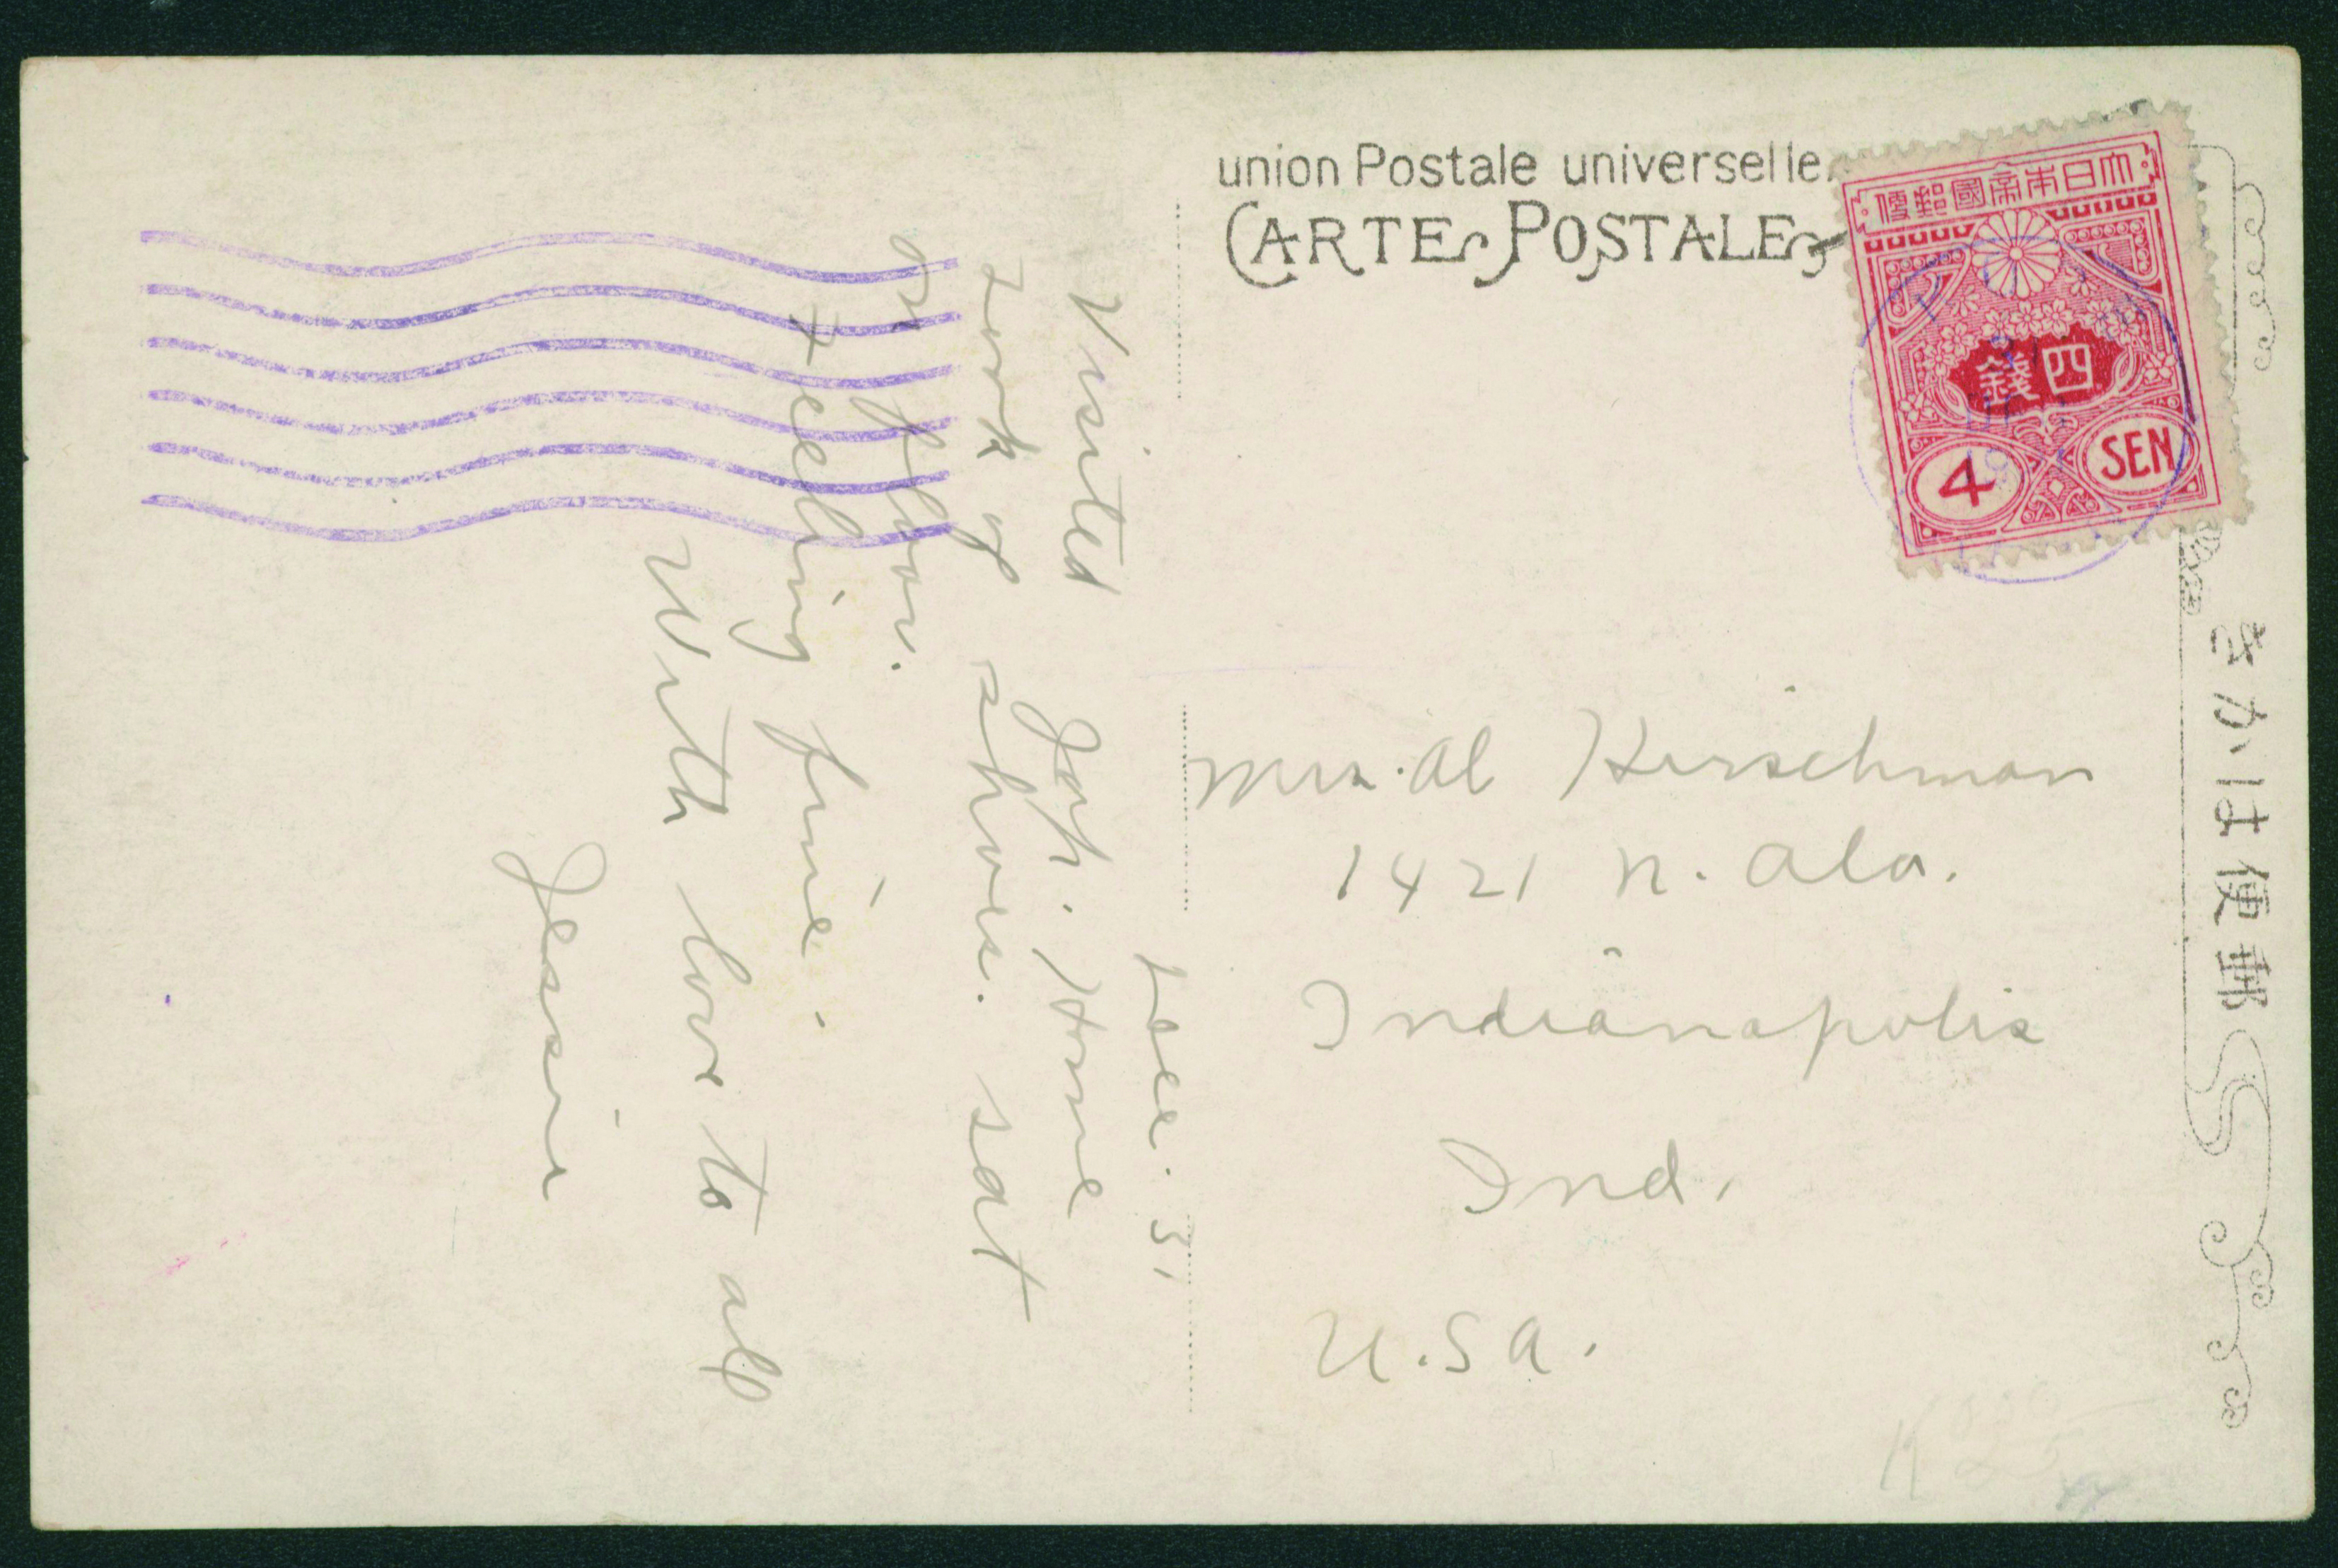 union Postale universelle.
CARTE POSTALE
大日本帝國郵便
四錢
4 SEN
きかは便郵
Dec. 31
Visited Jap. Home
took of shoes. sat
on floor.
Feeling fine.
With love to all
Jessie
Mrs. Al Hirschman
1421 N. Ala.
Indianapolis
Ind.
U.S.A.